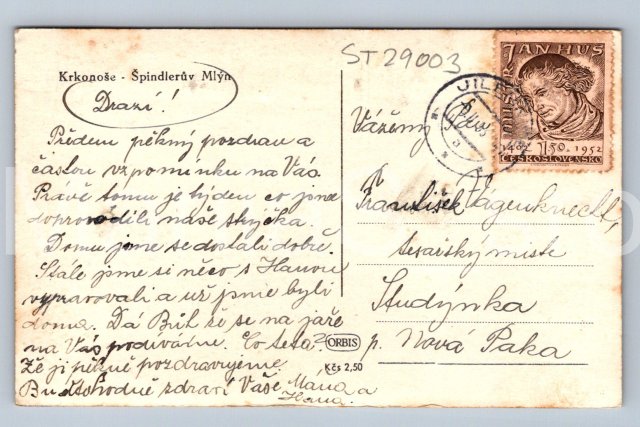 ST 29003
Krkonoše - Špindlerův Mlýn
Drazí!
Předem pěkný pozdrav a
častou vzpomínku na Vás.
Právě tomu je týden co jsme
doprovodili naše
Domu jsme se dostali dobře.
Stále jsme si něco s Hanou
vypravovali a už jsme byli
doma. Dá Bůh že se na jaře
na Vás podíváme. Co teta?
Že ji pěkně pozdravujeme.
Buďte hodně zdraví Vaše Máňa a
Hana.
MISTR JAN HUS
1,50 1952
ČESKOSLOVENSKO
JILE
Vážený
František Vágenknecht,
tesařský
Studýnka
p. Nová Paka
ORBIS
Kčs 2,50